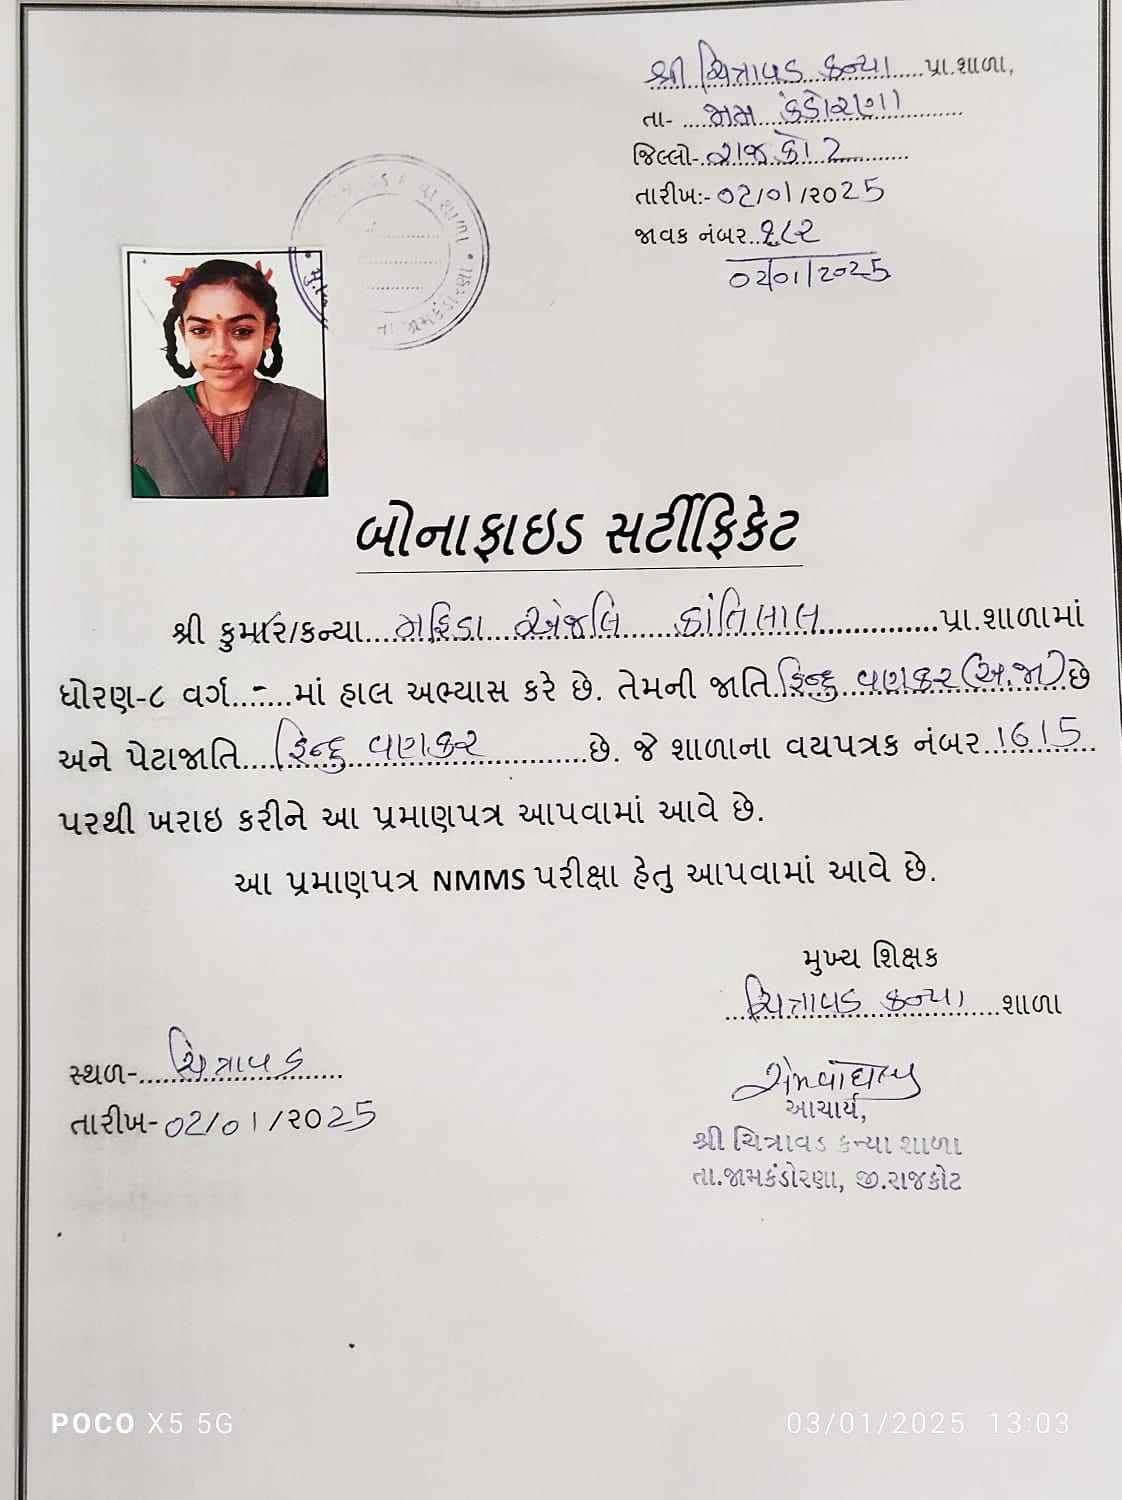 શ્રી ચિત્રાવડ કન્યા પ્રા.શાળા,
તા- જામ કંડોરણા
જિલ્લો- રાજકોટ
તારીખ:- 02/01/૨૦25
જાવક નંબર..૧૮૨
02/01/2025
બોનાફાઇડ સર્ટીફિકેટ
શ્રી કુમાર/કન્યા... મકિડા અંજલિ કાંતિલાલ ...પ્રા.શાળામાં
ધોરણ-૮ વર્ગ..-...માં હાલ અભ્યાસ કરે છે. તેમની જાતિ હિન્દુ વણકર (અ.જા) છે
અને પેટાજાતિ.... હિન્દુ વણકર ....છે. જે શાળાના વયપત્રક નંબર..1615
પરથી ખરાઇ કરીને આ પ્રમાણપત્ર આપવામાં આવે છે.
આ પ્રમાણપત્ર NMMS પરીક્ષા હેતુ આપવામાં આવે છે.
મુખ્ય શિક્ષક
ચિત્રાવડ કન્યા ....શાળા
સ્થળ-... ચિત્રાવડ
તારીખ- 02/01/૨૦25
આચાર્ય,
શ્રી ચિત્રાવડ કન્યા શાળા
તા.જામકંડોરણા, જી.રાજકોટ
POCO X5 5G
03/01/2025 13:03